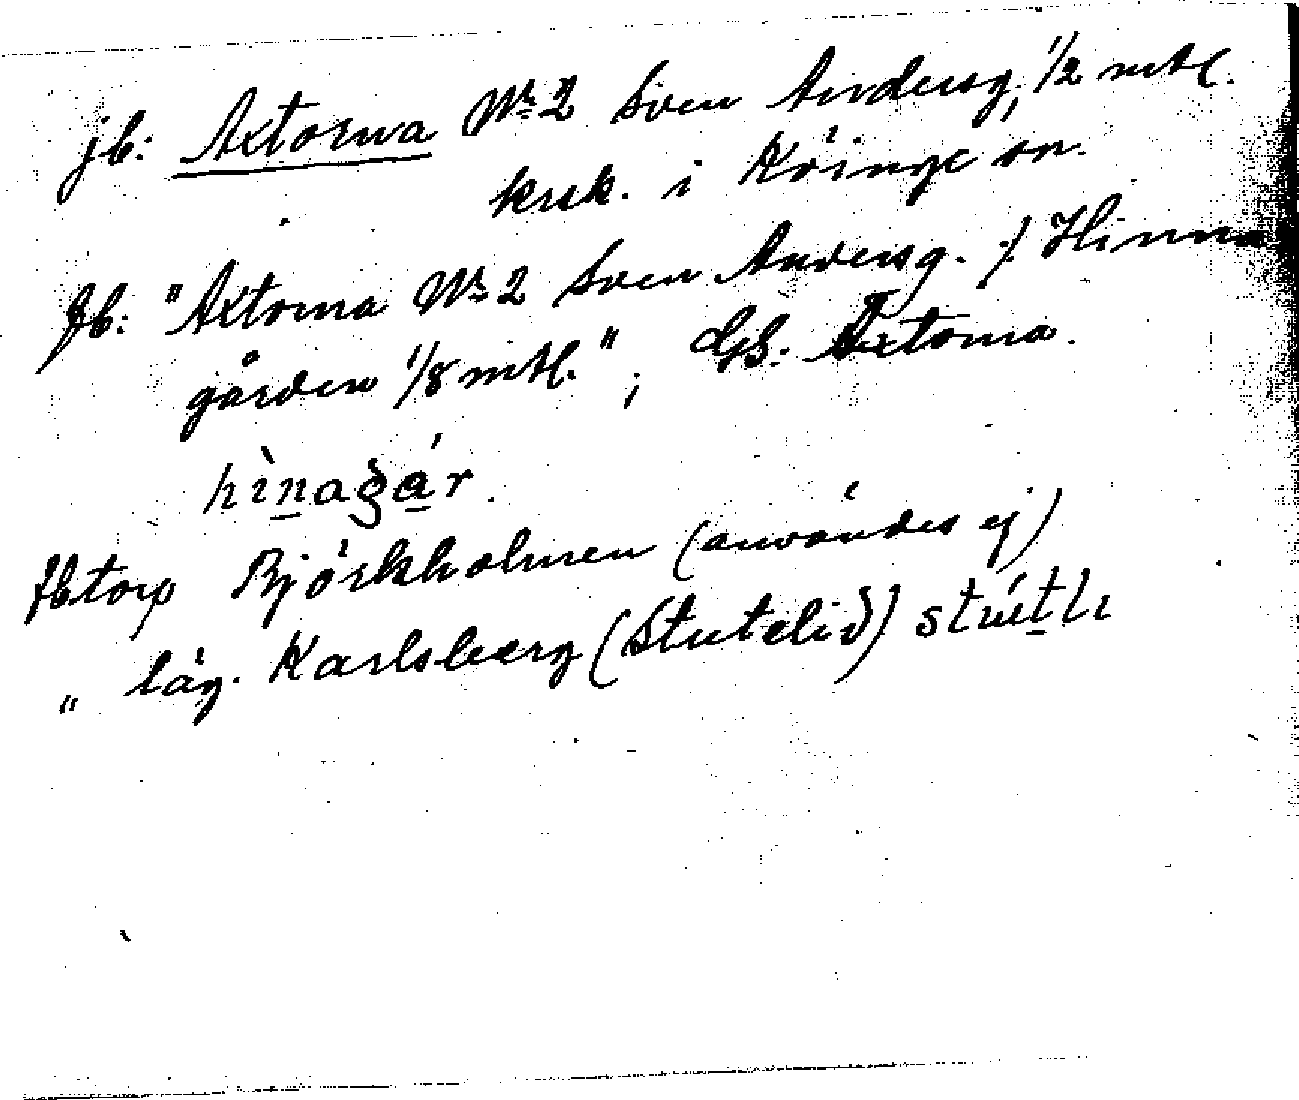 jb: Axtorna Nr 2 Sven Andersg, 1/2 mtl.
krsk. i Köinge sn.
Jb: "Axtorna Nr 2 Sven Andersg. /. Hinna
gården 1/8 mtl."; GS: Axtorna.
hìnagár.
Jbtorp Björkholmen (användes ej)
„ läg. Karlsberg (Stutelid) strútli